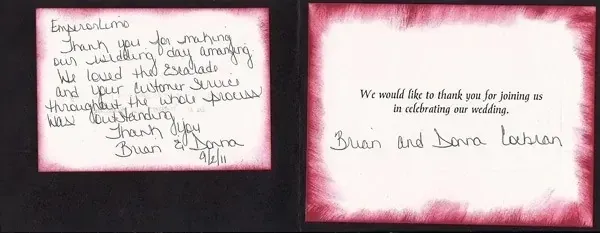 EmperorLimo
Thank you for making
our wedding day amazing.
We loved the Escalade
and your customer service
throughout the whole process
was outstanding
Thank You
Brian & Donna
9/2/11
We would like to thank you for joining us
in celebrating our wedding.
Brian and Donna